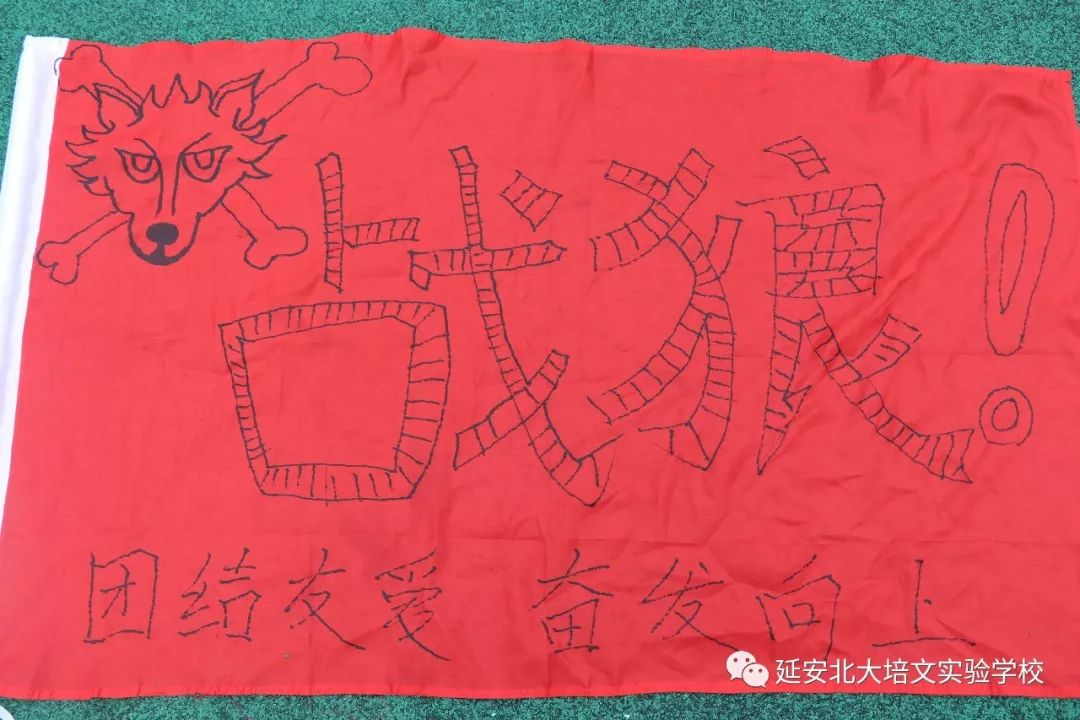 战狼!
团结友爱 奋发向上
延安北大培文实验学校